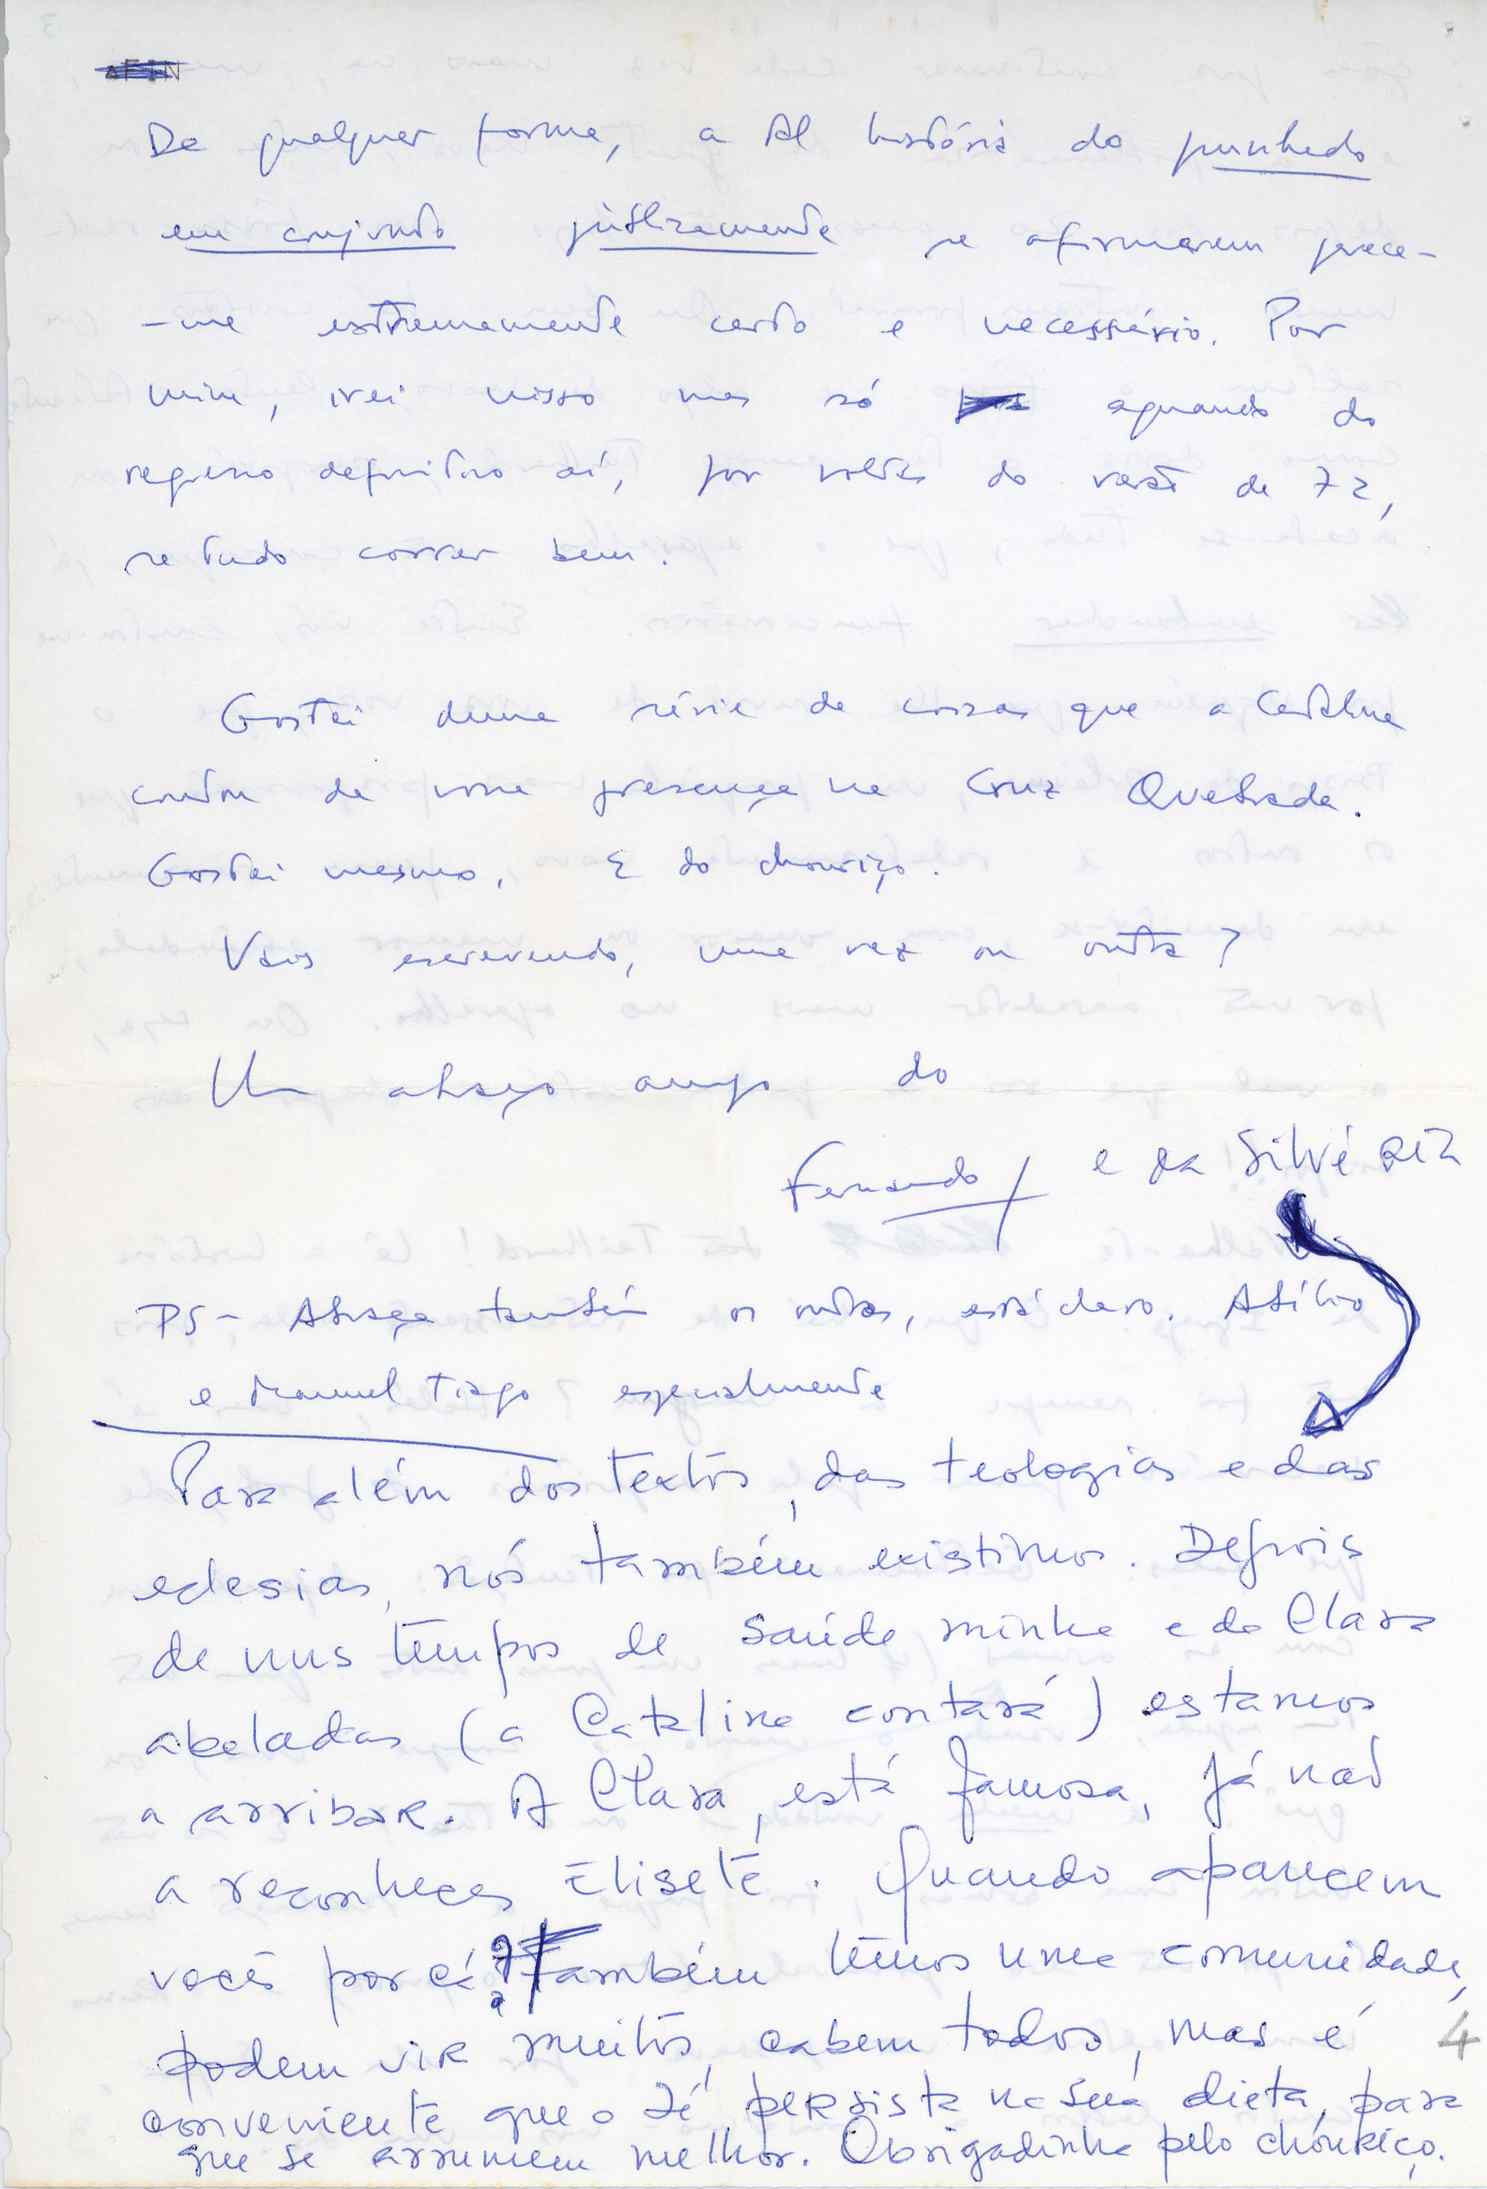 De qualquer forma, a tal história do punhado
em conjunto públicamente se afirmarem parece-
-me extremamente certo e necessário. Por
mim, irei nisso mas só aquando do
regresso definitivo aí, por voltas do verão de 72,
se tudo correr bem.
Gostei duma série de coisas que a Catalina
contou de vossa presença na Cruz Quebrada.
Gostei mesmo. E do chouriço.
Vais escrevendo, uma vez ou outra?
Um abraço amigo do
Fernando / e da Silvéria
PS - Abraça também os outros, está claro. Abílio
e Manuel Tiago especialmente
Para além dos textos, das teologias e das
eclesias, nós também existimos. Depois
de uns tempos de saúde minha e da Clara
abeladas (a Catalina contará) estamos
a arribar. A Clara, está famosa, já não
a reconheces Elisete. Quando aparecem
vocês por cá? Também temos uma comunidade,
podem vir muitos, cabem todos, mas é
conveniente que o Zé persista na sua dieta, para
que se arrumem melhor. Obrigadinha pelo chouriço.
4